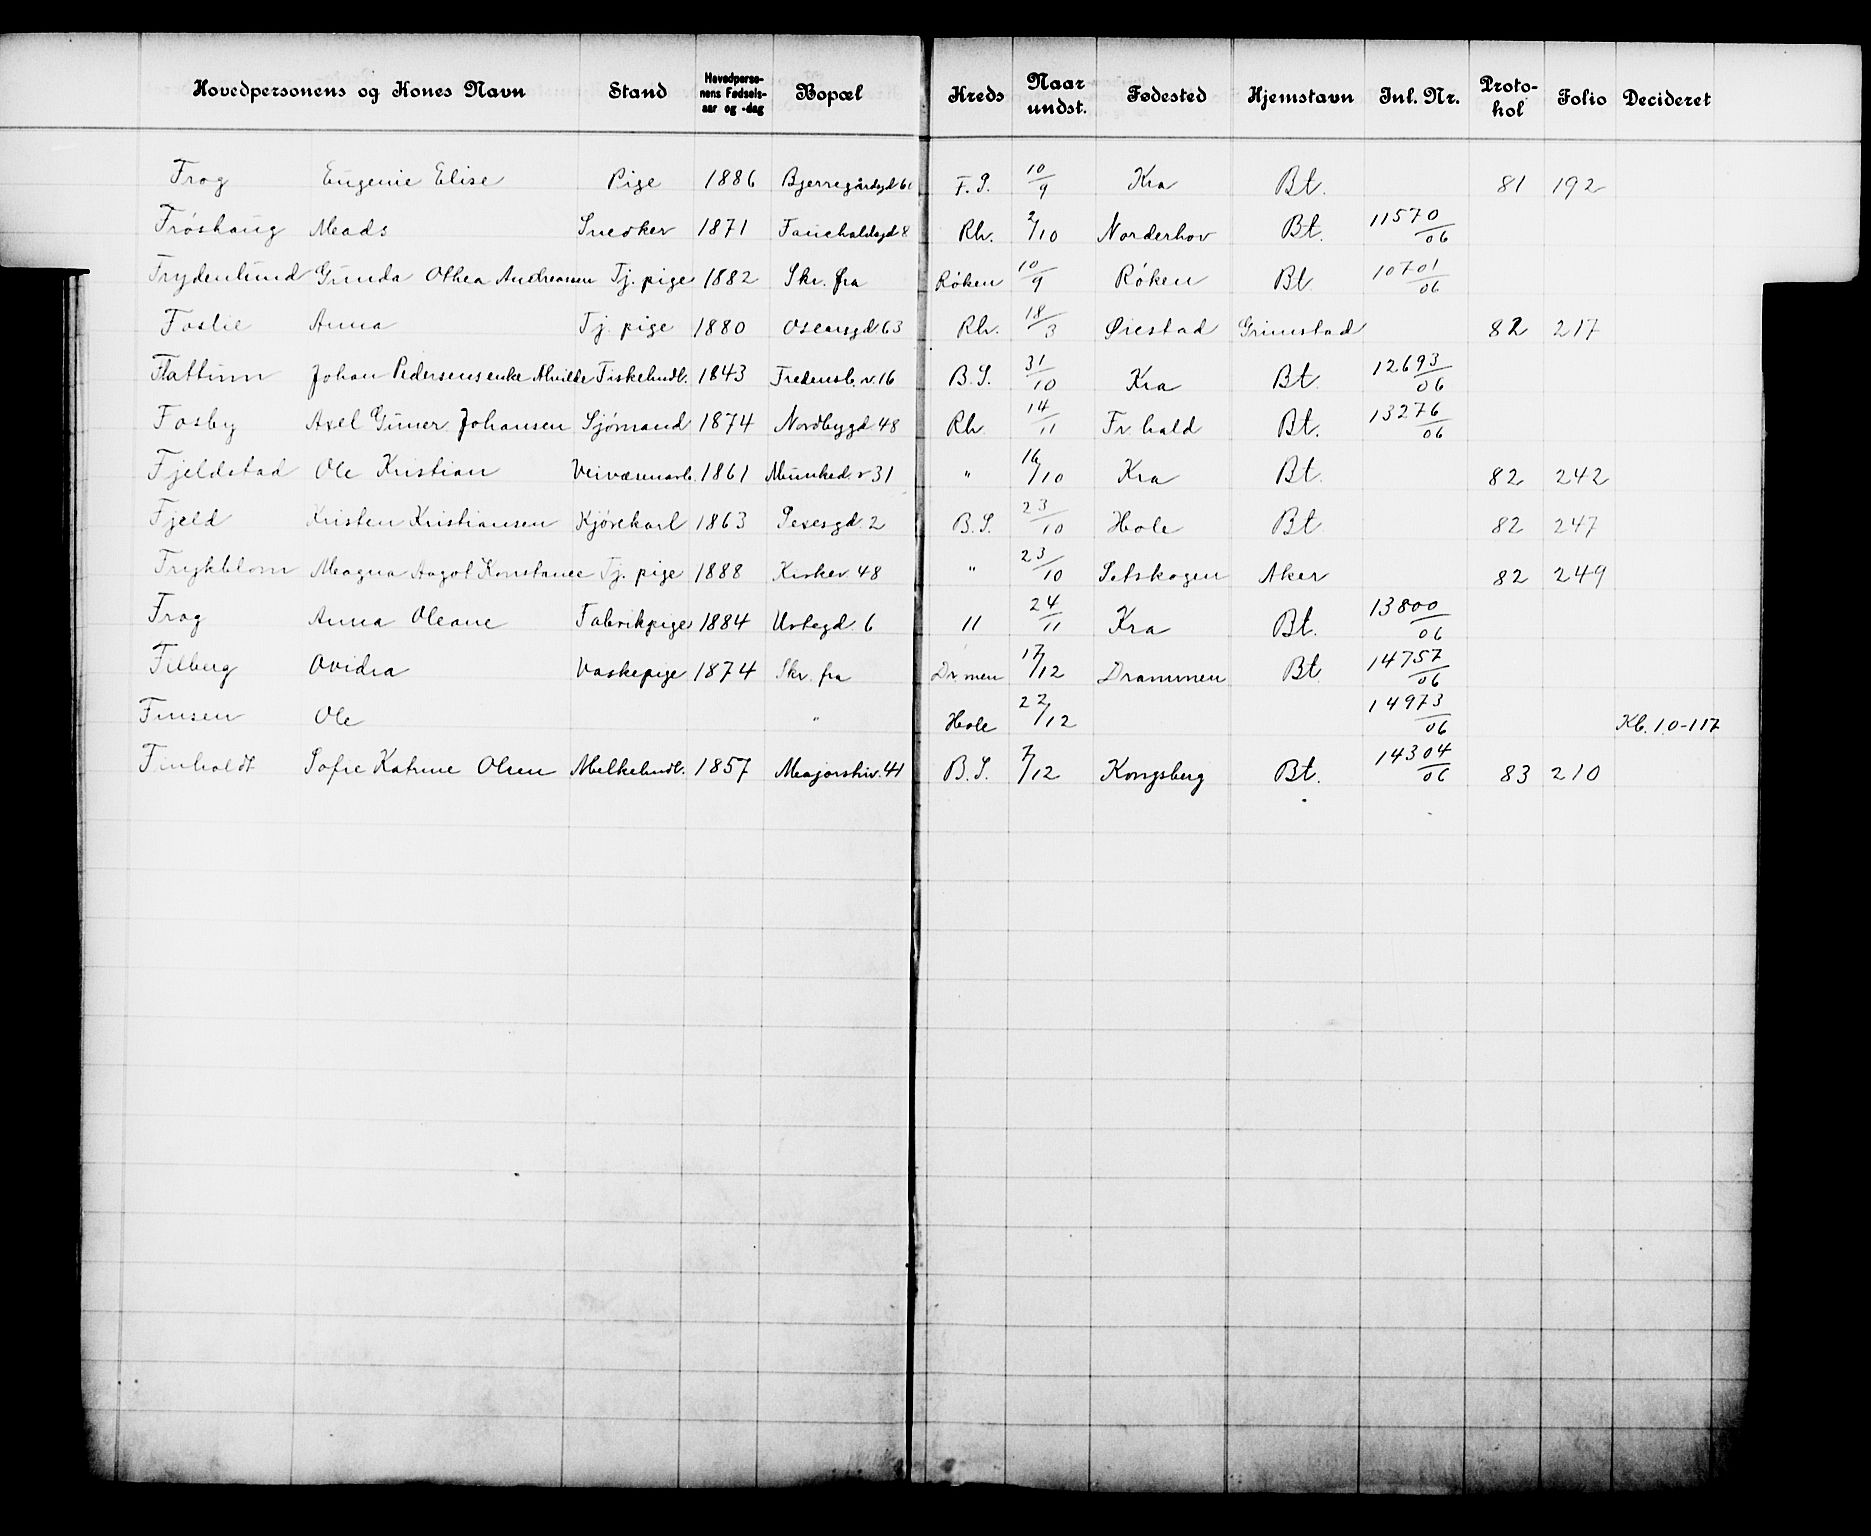 Hovedpersonens og Kones Navn Stand Hovedpersonens Fødselsaar og -dag Bopæl Kreds Naar undst. Fødested Hjemstavn Inl. Nr. Protokol Folio Decideret
Frog Eugenie Elise Pige 1886 Bjerregårdsgd 61 F.S. 10/9 Kra Bt. 81 192
Frøshaug Mads Snedker 1871 Fauchaldsgd 8 Rh. 2/10 Norderhov Bt. 11570/06
Frydenlund Gunda Othea Andreasen Tj. pige 1882 Skr. fra Røken 10/9 Røken Bt 10701/06
Foslie Anna Tj. pige 1880 Oscarsgd. 63 Rh. 18/3 Øiestad Grimstad 82 217
Flattum Johan Pedersens enke Alvilde Fiskehndl. 1843 Fredensb. v. 16 B.S. 31/10 Kra Bt. 12693/06
Fosby Axel Guner Johansen Sjømand 1874 Nordbygd. 48 Rh. 14/11 Fr. hald Bt. 13276/06
Fjeldstad Ole Kristian Veivæsenarb. 1861 Munked. v 31 " 16/10 Kra Bt. 82 242
Fjeld Kristen Kristiansen Kjørekarl 1863 2 B.S. 23/10 Hole Bt. 82 247
Frykblom Magna Aagot Konstance Tj. pige 1888 Kirkev. 48 " 23/10 Setskogen Aker 82 249
Frog Anna Oleane Fabrikpige 1884 Urtegd. 6 " 24/11 Kra Bt. 13800/06
Filberg Ovidia Vaskepige 1874 Skr. fra Dr. men 17/12 Drammen Bt. 14757/06
Finsen Ole " Hole 22/12 14973/06 Kb. 10-117
Finholdt Sofie Katrine Olsen Melkehndl. 1857 Majorstuv. 41 B.S. 7/12 Kongsberg Bt. 14304/06 83 210